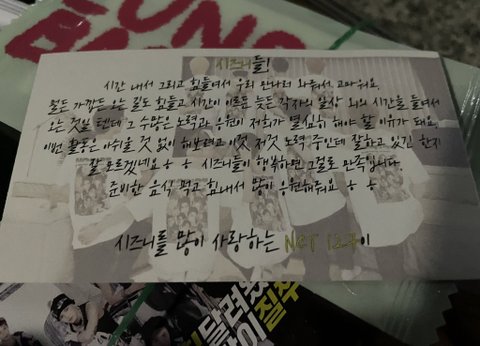 시즈니들!
시간 내서 그리고 힘들여서 우리 만나러 와줘서 고마워요.
멀든 가깝든 오는 길도 힘들고 시간이 이르든 늦든 각자의 일상 외의 시간을 들여서
오는 것일 텐데 그 수많은 노력과 응원이 저희가 열심히 해야 할 이유가 돼요.
이번 활동은 아쉬울 것 없이 해보려고 이것 저것 노력 중인데 잘하고 있긴 한지
잘 모르겠네요ㅎㅎ 시즈니들이 행복하면 그걸로 만족입니다.
준비한 음식 먹고 힘내서 많이 응원해줘요ㅎㅎ
시즈니를 많이 사랑하는 NCT 127이
달려왔
질주